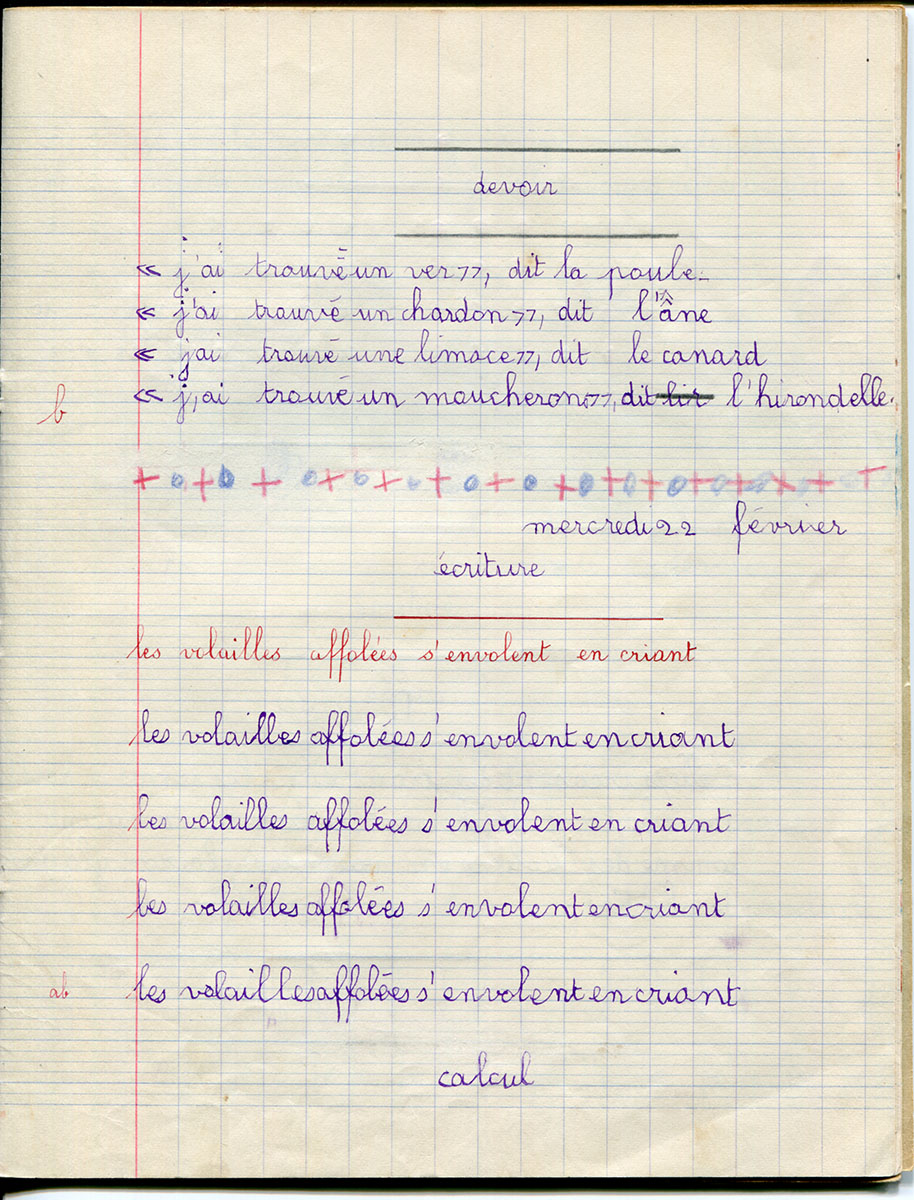 devoir
« j'ai trouvé un ver », dit la poule.
« j'ai trouvé un chardon », dit l'âne
« jai trouvé une limace », dit le canard
« j,ai trouvé un moucheron », dit lir l'hirondelle.
b
+ o + o + o + o + o + o + o + o + o + o + o + o + +
mercredi 22 février
écriture
les volailles affolées s'envolent en criant
les volailles affolées s'envolent en criant
les volailles affolées s'envolent en criant
les volailles affolées s'envolent en criant
ab les volailles affolées s'envolent en criant
calcul